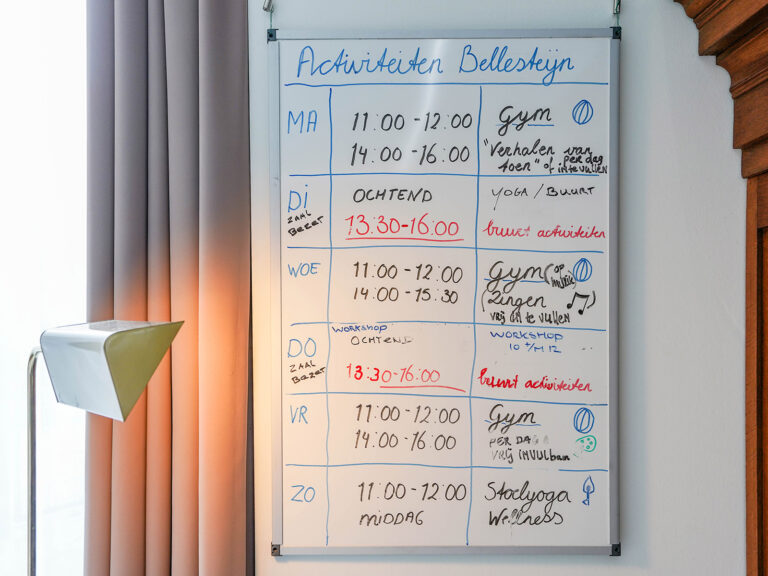 Activiteiten Bellesteijn
MA 11:00 - 12:00 Gym
14:00 - 16:00 "Verhalen van
toen" of per dag
in te vullen
Di OCHTEND YOGA / BUURT
ZAAL
BEZET 13:30-16:00 buurt activiteiten
WOE 11:00 - 12:00 Gym (op
muziek)
14:00 - 15:30 (Zingen
VRIJ IN te vullen
WORKSHOP WORKSHOP
DO OCHTEND 10 t/m 12
ZAAL
BEZET 13:30-16:00 buurt activiteiten
VR 11:00 - 12:00 Gym
14:00 - 16:00 PER DAG
VRIJ INVULbaar
ZO 11:00 - 12:00 Stoelyoga
MIDDAG Wellness